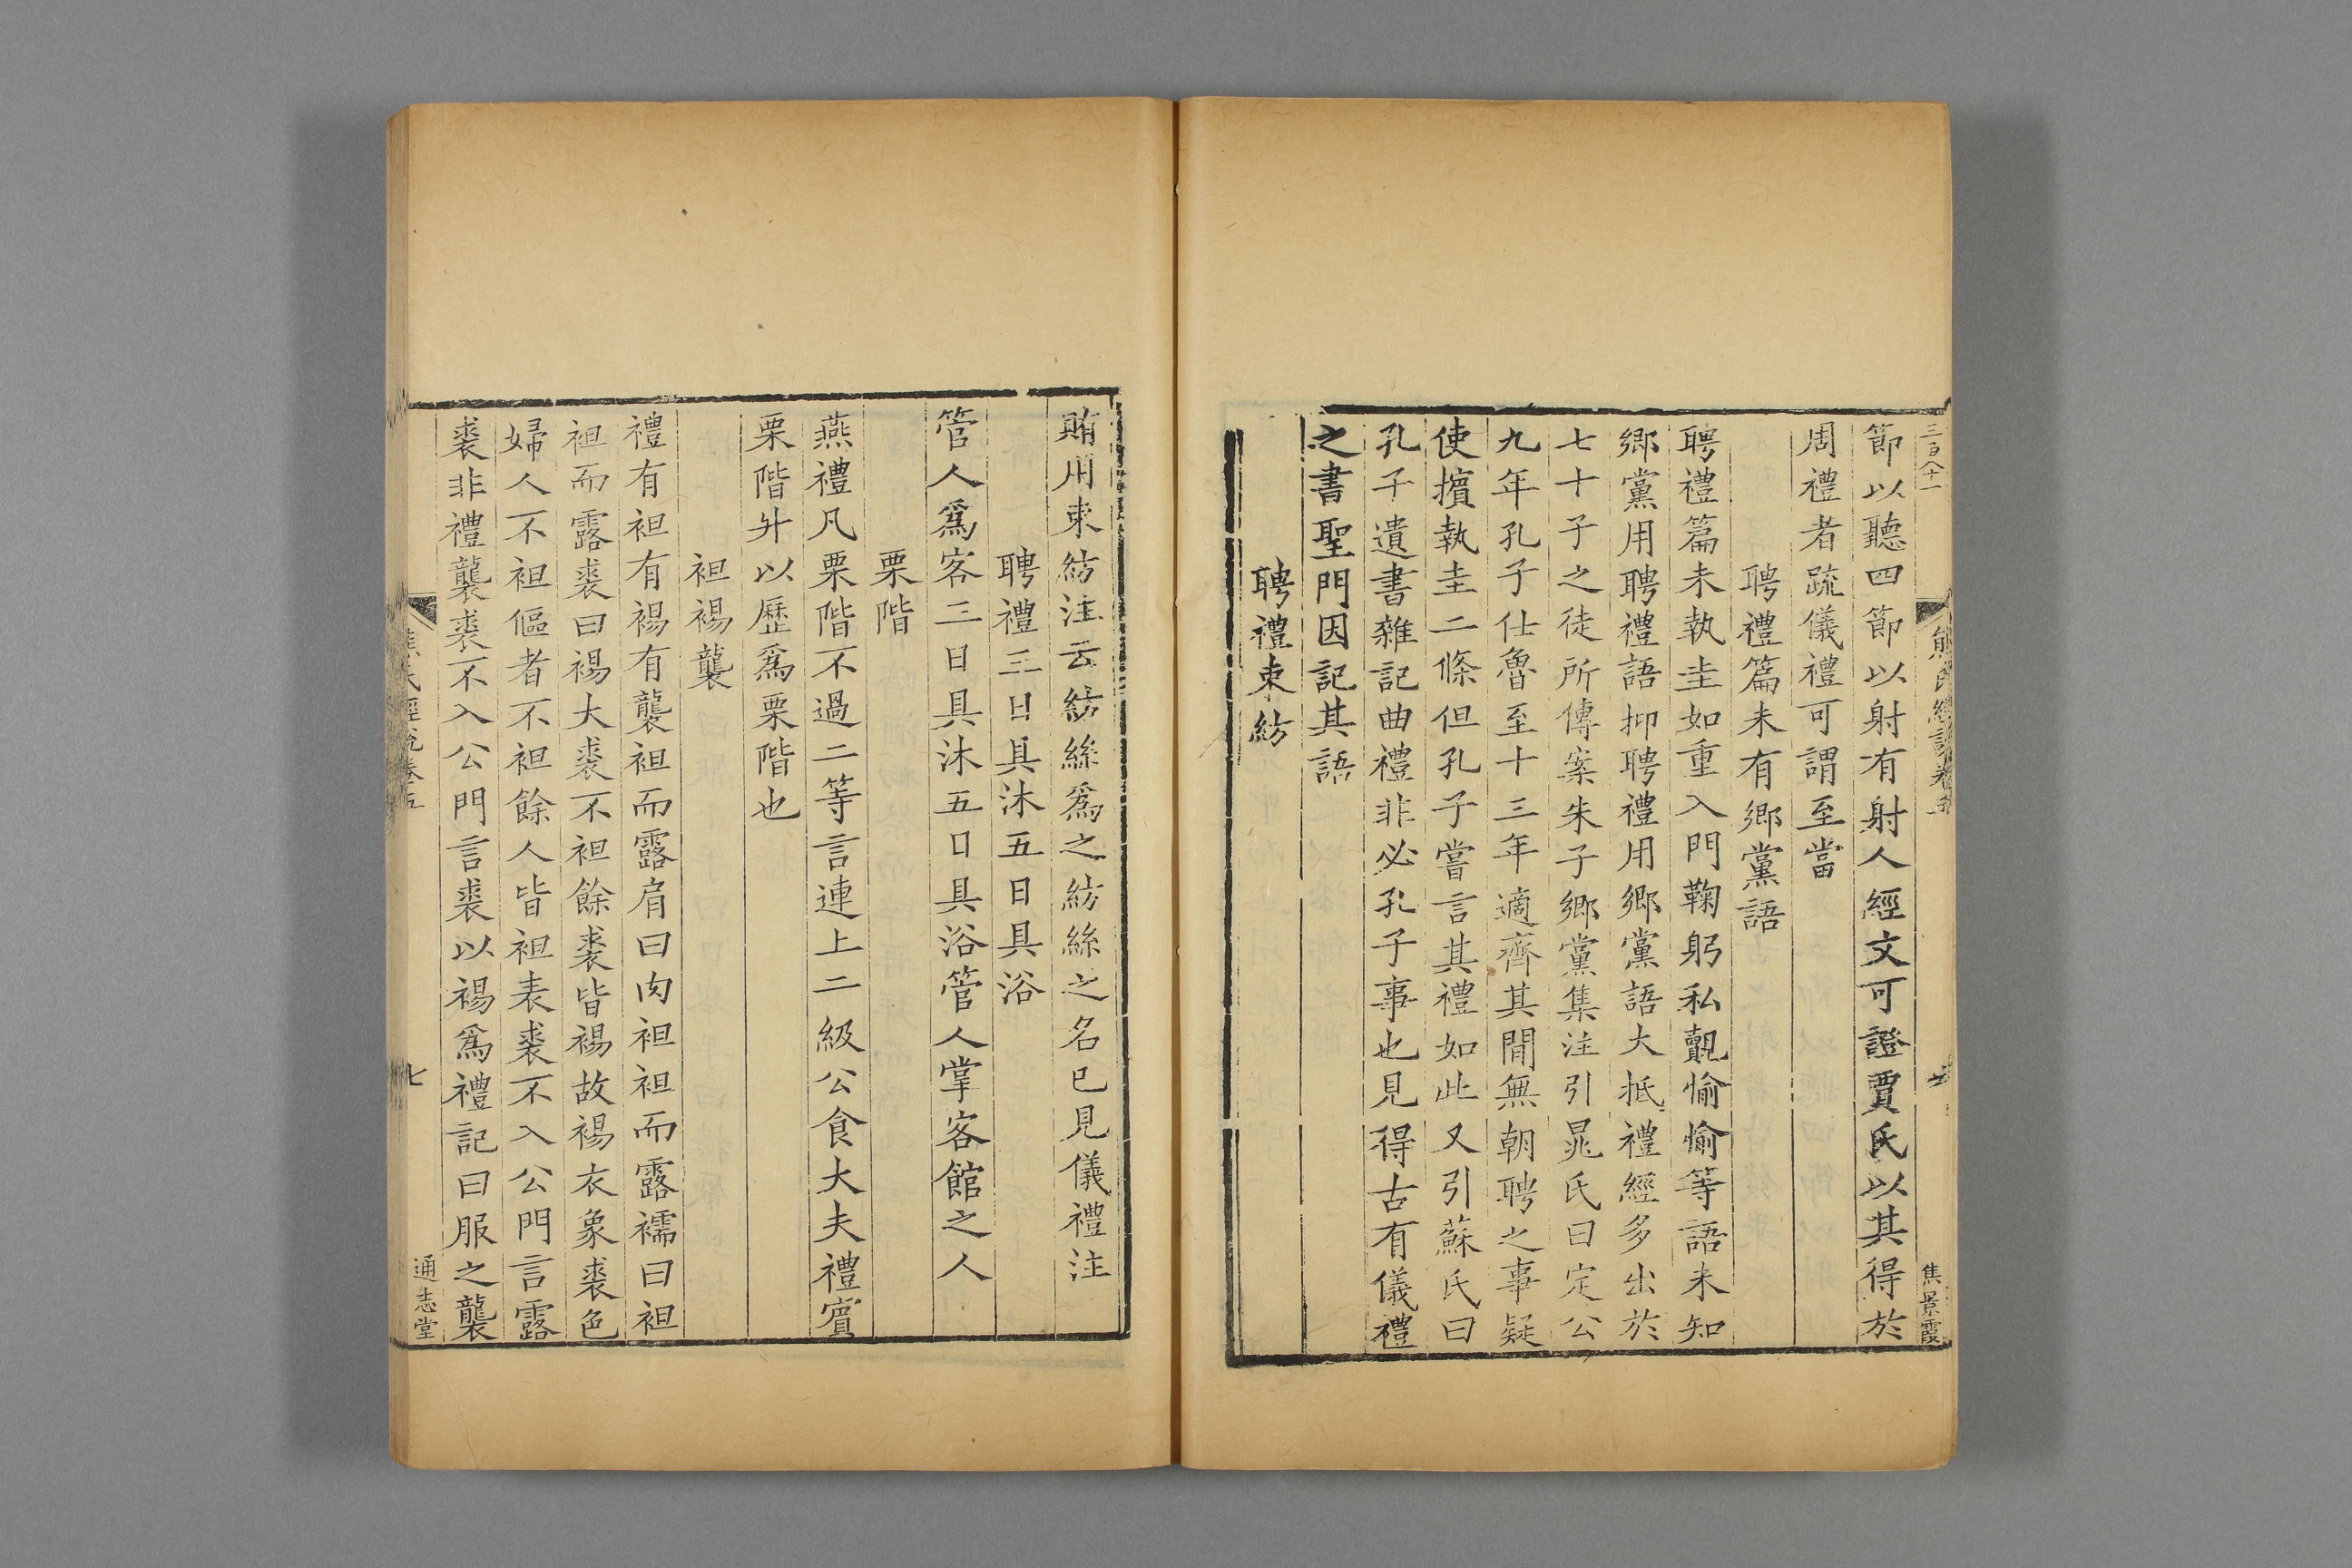 三百八十一
熊氏經說卷五
焦景霞
節以聽四節以射有射人經文可證賈氏以其得於
周禮者疏儀禮可謂至當
聘禮篇未有鄉黨語
聘禮篇未執圭如重入門鞠躬私覿愉愉等語未知
鄉黨用聘禮語抑聘禮用鄉黨語大抵禮經多出於
七十子之徒所傳案朱子鄉黨集注引晁氏曰定公
九年孔子仕魯至十三年適齊其間無朝聘之事疑
使擯執圭二條但孔子嘗言其禮如此又引蘇氏曰
孔子遺書雜記曲禮非必孔子事也見得古有儀禮
之書聖門因記其語
聘禮束紡
賄用束紡注云紡紡絲爲之紡絲之名已見儀禮注
聘禮三日具沐五日具浴
管人爲客三日具沐五日具浴管人掌客館之人
栗階
燕禮凡栗階不過二等言連上二級公食大夫禮賓
栗階升以歷爲栗階也
袒裼襲
禮有袒有裼有襲袒而露肩曰肉袒袒而露襦曰袒
袒而露裘曰裼大裘不袒餘裘皆裼故裼衣象裘色
婦人不袒傴者不袒餘人皆袒表裘不入公門言露
裘非禮襲裘不入公門言裘以裼爲禮記曰服之襲
熊氏經說卷五
七
通志堂